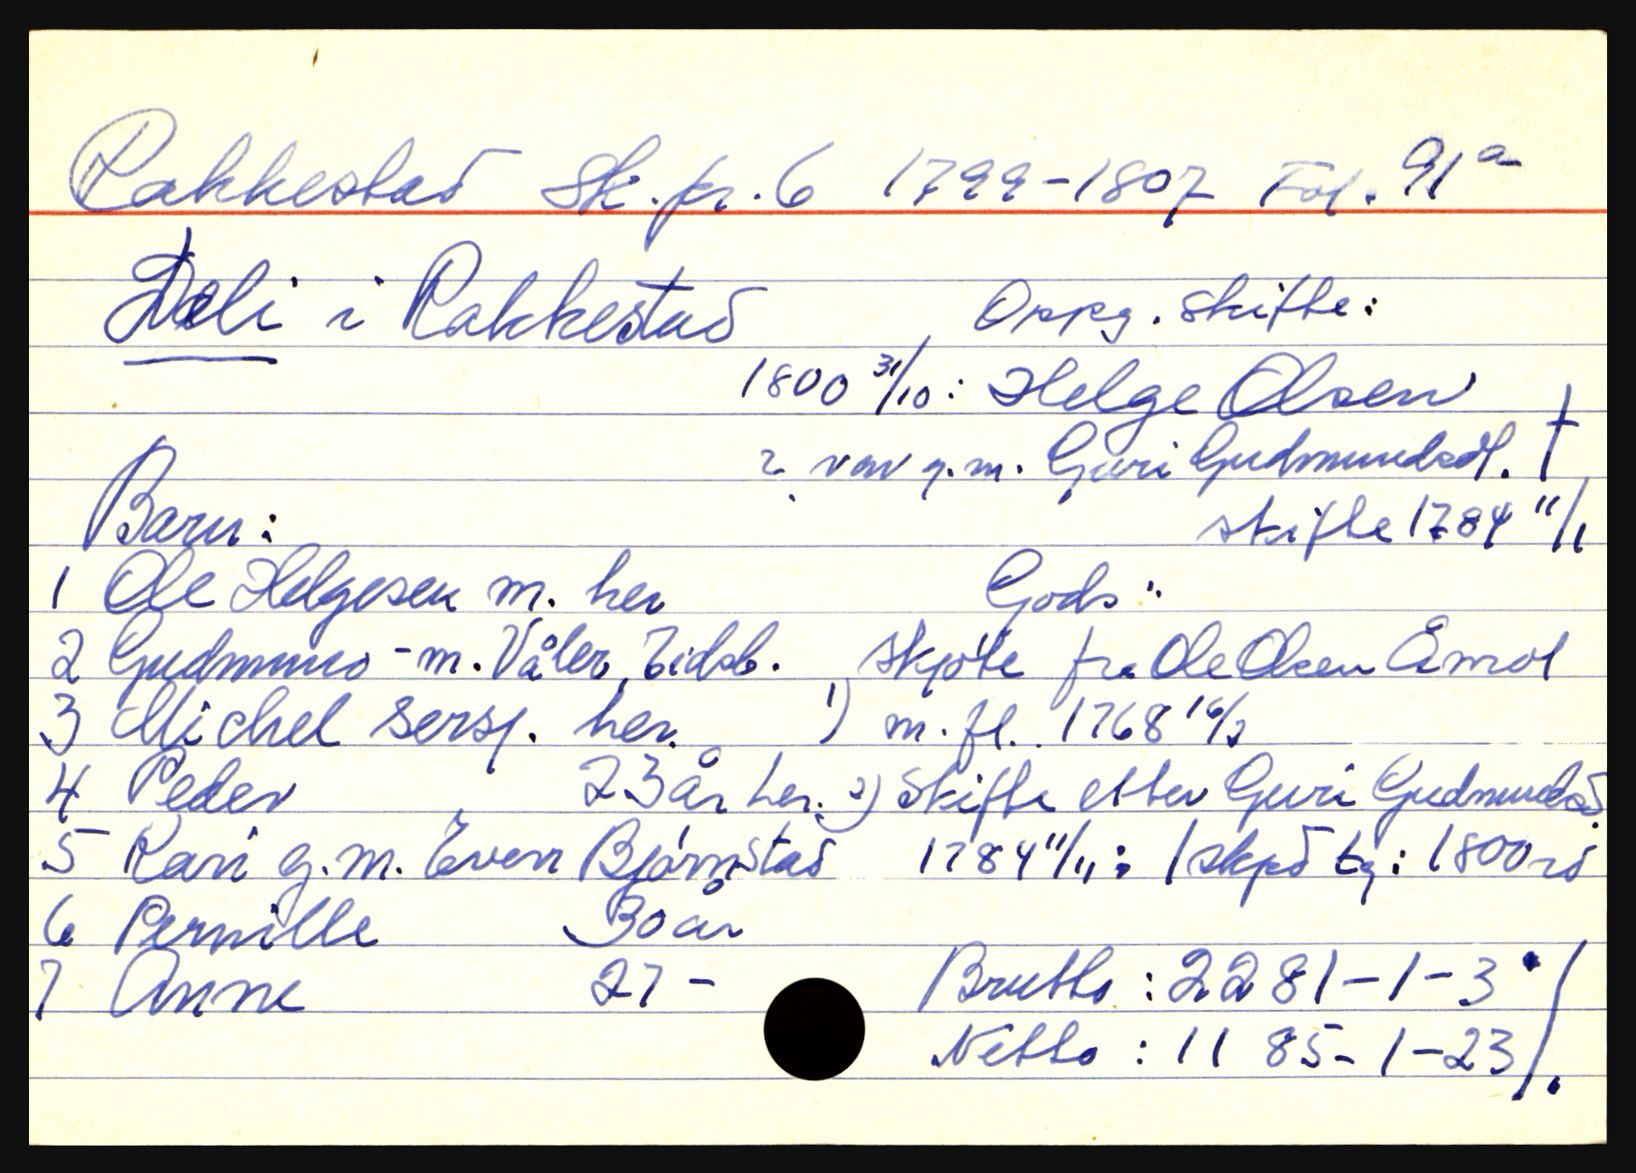 Rakkestad Sk.pr. 6 1799-1807 Fol. 91a
Dæli i Rakkestad Oppg. skifte:
1800 31/10: Helge Olsen
? var g.m. Guri Gudmundsdt. †
skifte 1784 11/11
Barn:
1 Ole Helgesen m. her Gods:
2 Gudmund - m. Våler, Eidsb. Skjøte fra Ole Olsen
3 Michel sersj. her. 1) m. fl. 1768 16/2
4 Peder 23 år her. 2) Skifte etter Guri Gudmundsd.
5 Kari g.m. Even Bjørnstad 1784 11/11: 1 skpd tg: 1800 rd
6 Pernille 30 år
7 Anne 27 - Brutto: 2281-1-3
Netto: 1185-1-23